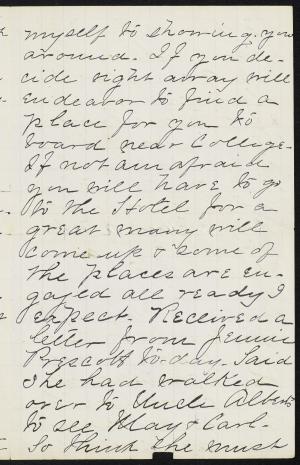 myself to showing you
around. If you de-
cide right away will
endeavor to find a
place for you to
board near College.
If not am afraid
you will have to go
to the Hotel for a
great many will
come up & some of
the places are en-
gaged all ready I
expect. Received a
letter from Jennie
Prescott to-day. Said
she had walked
over to Uncle Alberts
to see May & Carl.
So think she must